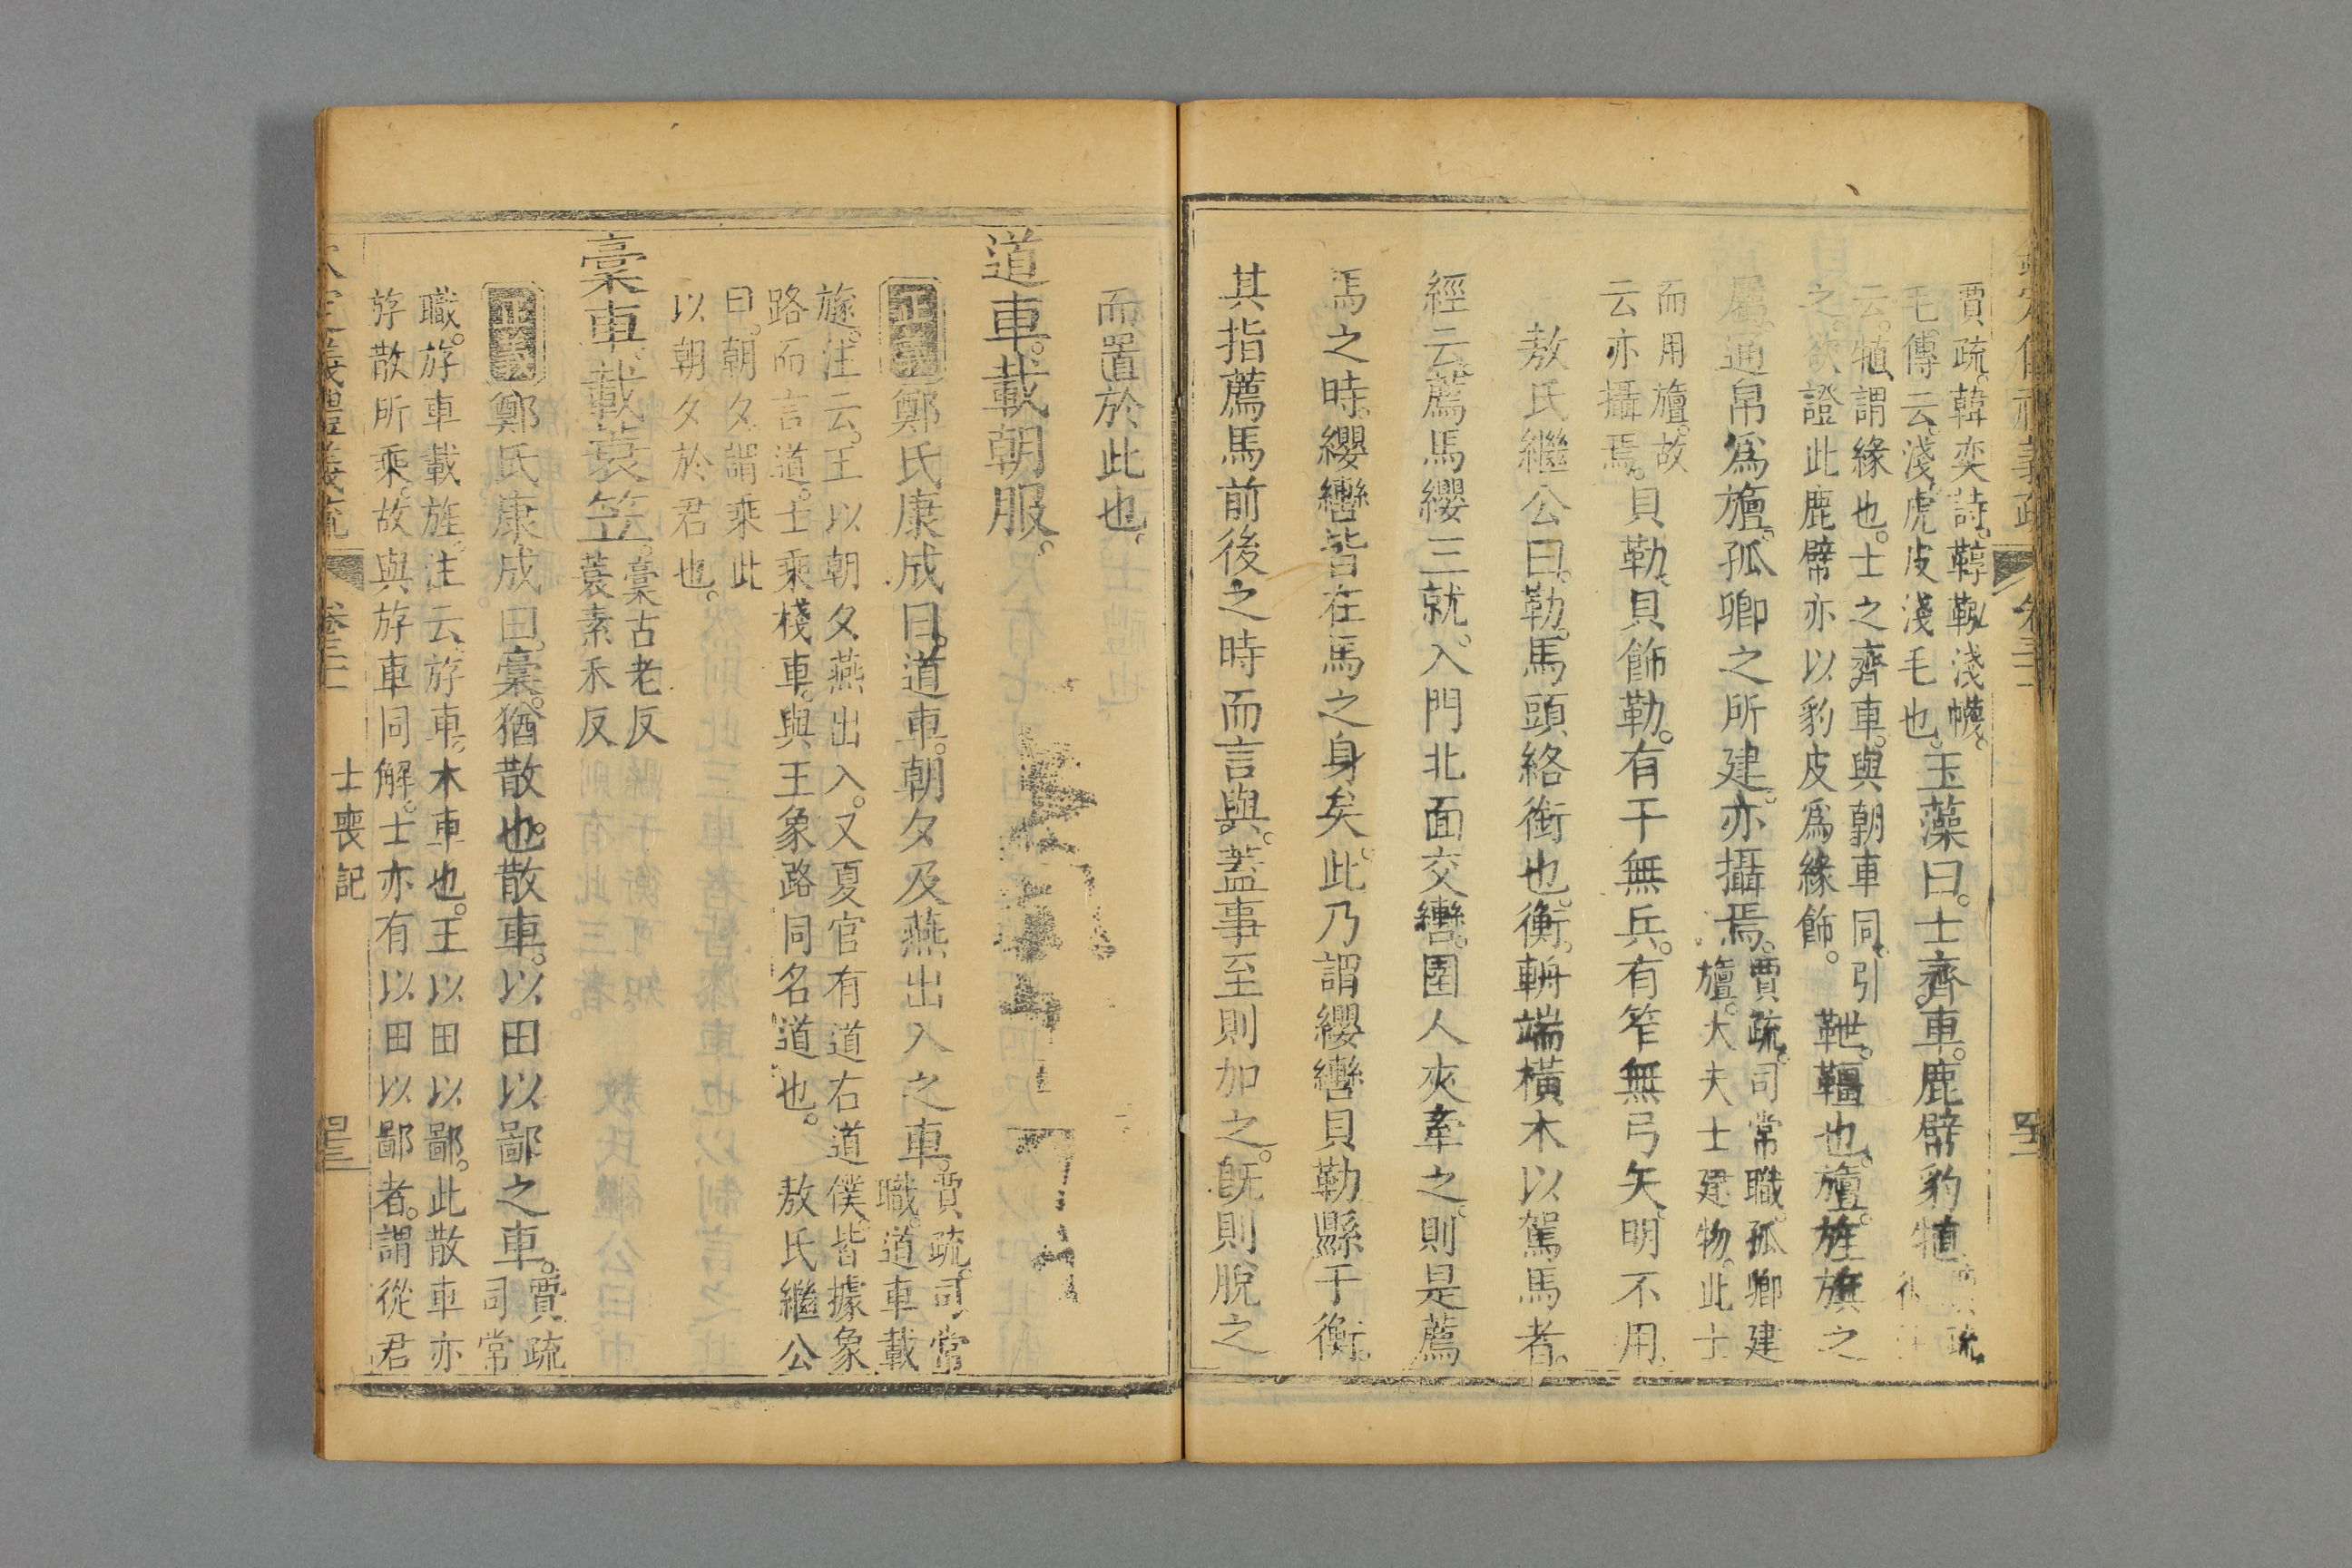 賈疏韓奕詩鞹鞃淺幭
毛傳云淺虎皮淺毛也
玉藻曰士齊車鹿幦豹犆
疏
云犆謂緣也士之齊車與朝車同引
之欲證此鹿幦亦以豹皮爲緣飾
靾韁也旜旌旗之
屬通帛爲旜孤卿之所建亦攝焉
賈疏司常職孤卿建
旜大夫士建物此士
而用旜故
云亦攝焉
貝勒貝飾勒有干無兵有笮無弓矢明不用
敖氏繼公曰勒馬頭絡銜也衡輈端橫木以駕馬者
經云薦馬纓三就入門北面交轡圉人夾牽之則是薦
馬之時纓轡皆在馬之身矣此乃謂纓轡貝勒縣于衡
其指薦馬前後之時而言與蓋事至則加之既則脫之
而置於此也
道車載朝服
正義鄭氏康成曰道車朝夕及燕出入之車
賈疏司常
職道車載
旞注云王以朝夕燕出入又夏官有道右道僕皆據象
路而言道士乘棧車與王象路同名道也
敖氏繼公
曰朝夕謂乘此
以朝夕於君也
稾車載蓑笠
稾古老反
蓑素禾反
正義鄭氏康成曰稾猶散也散車以田以鄙之車
賈疏
司常
職斿車載旌注云斿車木車也王以田以鄙此散車亦
斿散所乘故與斿車同解士亦有以田以鄙者謂從君
士喪記